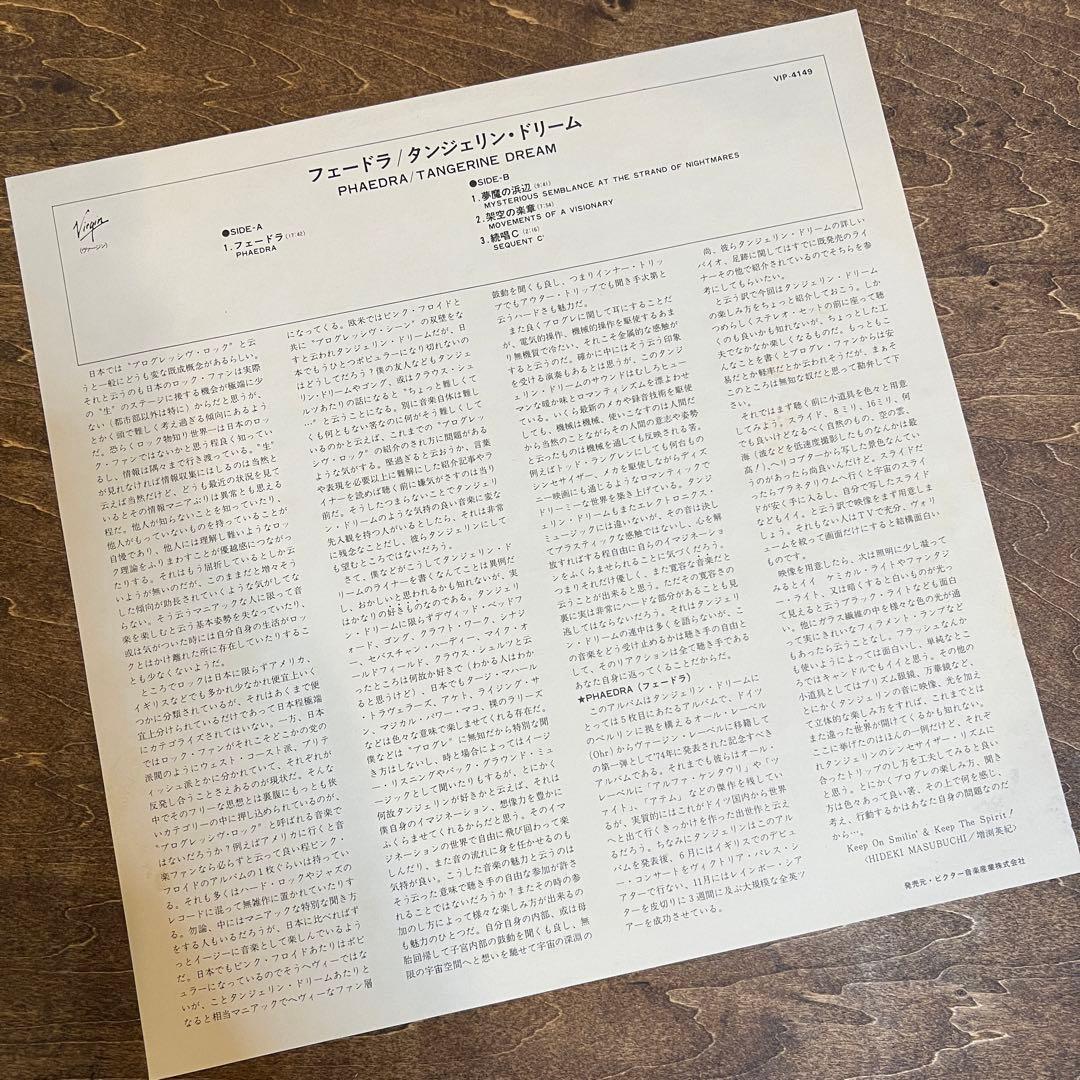 VIP-4149
フェードラ/タンジェリン・ドリーム
PHAEDRA/TANGERINE DREAM
Virgin
(ヴァージン)
●SIDE-A
1.フェードラ(17:42)
PHAEDRA
●SIDE-B
1.夢魔の浜辺(9:41)
MYSTERIOUS SEMBLANCE AT THE STRAND OF NIGHTMARES
2.架空の楽章(7:54)
MOVEMENTS OF A VISIONARY
3.続唱C(2:16)
SEQUENT C'
日本では“プログレッシヴ・ロック”と云
うと一般にどうも変な既成概念があるらしい。
それと云うのも日本のロック・ファンは実際
の“生”のステージに接する機会が極端に少
ない(都市部以外は特に)からだと思うが、
とかく頭で難しく考え過ぎる傾向にあるよう
だ。恐らくロック物知り世界一は日本のロッ
ク・ファンではないかと思う程良く知ってい
るし、情報は隅々まで行き渡っている。“生”
が見れなければ情報収集にはしるのは当然と
云えば当然だけど、どうも最近の状況を見て
いるとその情報マニアぶりは異常とも思える
程だ。他人が知らないことを知っていたり、
他人がもっていないものを持っていることが
自慢であり、他人には理解し難いようなロッ
ク理論をふりまわすことが優越感につながっ
たりする。それはもう屈折しているとしか云
いようが無いのだが、このままだと増々そう
した傾向が助長されていくような気がしてな
らない。そう云うマニアックな人に限って音
楽を楽しむと云う基本姿勢を失なっていたり、
或は気がついた時には自分自身の生活がロッ
クとはかけ離れた所に存在していたりするこ
とも少なくないようだ。
ところでロックは日本に限らずアメリカ、
イギリスなどでも多かれ少なかれ便宜上いく
つかに分類されているが、それはあくまで便
宜上分けられているだけであって日本程極端
にカテゴライズされてはいない。一方、日本
ではロック・ファンがそれこそどこかの党の
派閥のようにウェスト・コースト派、ブリテ
ィッシュ派とかに分かれていて、それぞれが
反発し合うことさえあるのが現状だ。そんな
中でそのフリーな思想とは裏腹にもっとも狭
いカテゴリーの中に押し込められているのが、
“プログレッシヴ・ロック”と呼ばれる音楽で
はないだろうか?例えばアメリカに行くと音
楽ファンなら必らずと云って良い程ピンク・
フロイドのアルバムの1枚ぐらいは持ってい
る。それも多くはハード・ロックやジャズの
レコードに混って無雑作に置かれていたりす
る。勿論、中にはマニアックな特別な聞き方
をする人もいるだろうが、日本に比べればず
っとイージーに音楽として楽しんでいるよう
だ。日本でもピンク・フロイドあたりはポピ
ュラーになっているのでそうヘヴィーではな
いが、ことタンジェリン・ドリームあたりと
なると相当マニアックでヘヴィーなファン層
になってくる。欧米ではピンク・フロイドと
共に“プログレッシヴ・シーン”の双璧をな
すと云われタンジェリン・ドリームだが、日
本でもうひとつポピュラーになり切れないの
はどうしてだろう?僕の友人などもタンジェ
リン・ドリームやゴング、或はクラウス・シュ
ルツあたりの話になると“ちょっと難しくて
…”と云うことになる。別に音楽自体は難し
くも何ともない筈なのに何がそう難しくして
いるのかと云えば、これまでの“プログレッ
シヴ・ロック”の紹介のされ方に問題がある
ような気がする。堅過ぎると云おうか、言葉
や表現を必要以上に難解にした紹介記事やラ
イナーを読めば聴く前に嫌気がさすのは当り
前だ。そうしたつまらないことでタンジェリ
ン・ドリームのような気持の良い音楽に変な
先入観を持つ人がいるとしたら、それは非常
に残念なことだし、彼らタンジェリンにして
も望むところではないだろう。
さて、僕などがこうしてタンジェリン・ド
リームのライナーを書くなんてことは異例だ
し、おかしいと思われるかも知れないが、実
はかなりの好きものなのである。タンジェリ
ン・ドリームに限らずデヴィッド・ベッドフ
ォード、ゴング、クラフト・ワーク、シナジ
ー、セバスチャン・ハーディー、マイク・オ
ールドフィールド、クラウス・シュルツと云
ったところは何故か好きで(わかる人はわか
ると思うけど)、日本でもタージ・マハール
・トラヴェラーズ、アケト、ライジング・サ
ン、マジカル・パワー・マコ、裸のラリーズ
などは色々な意味で楽しませてくれる存在だ。
僕などは“プログレ”に無知だから特別な聞
き方はしないし、時と場合によってはイージ
ー・リスニングやバック・グラウンド・ミュ
ージックとして聞いたりもするが、とにかく
何故タンジェリンが好きかと云えば、それは
僕自身のイマジネーション、想像力を豊かに
ふくらませてくれるからだと思う。そのイマ
ジネーションの世界で自由に飛び回わって楽
しんだり、また音の流れに身を任かせるのも
気持が良い。こうした音楽の魅力と云うのは
そう云った意味で聴き手の自由な参加が許さ
れることではないだろうか?またその時の参
加のし方によって様々な楽しみ方が出来るの
も魅力のひとつだ。自分自身の内部、或は母
胎回帰して子宮内部の鼓動を聞くも良し、無
限の宇宙空間へと想いを馳せて宇宙の深淵の
鼓動を聞くも良し、つまりインナー・トリッ
プでもアウター・トリップでも聞き手次第と
云うハードさも魅力だ。
また良くプログレに関して耳にすることだ
が、電気的操作、機械的操作を駆使するあま
り無機質で冷たい、それこそ金属的な感触が
すると云うのだ。確かに中にはそう云う印象
を受ける演奏もあるとは思うが、このタンジ
ェリン・ドリームのサウンドはむしろヒュー
マンな暖か味とロマンティシズムを漂よわせ
ている。いくら最新のメカや録音技術を駆使
しても、機械は機械、使いこなすのは人間だ
から当然のことながらその人間の意志や姿勢
と云ったものは機械を通しても反映される筈。
例えばトッド・ラングレンにしても何台もの
シンセサイザー、メカを駆使しながらディズ
ニー映画にも通じるようなロマンティックで
ドリーミーな世界を築き上げている。タンジ
ェリン・ドリームもまたエレクトロニクス・
ミュージックには違いないが、その音は決し
てプラスティックな感触ではないし、心を解
放すればする程自由に自らのイマジネーショ
ンをふくらませられることに気づくだろう。
つまりそれだけ優しく、また寛容な音楽だと
云うことが出来ると思う。ただその寛容さの
裏に実は非常にハードな部分があることも見
逃してはならないだろう。それはタンジェリ
ン・ドリームの連中は多くを語らないが、こ
の音楽をどう受け止めるかは聴き手の自由と
して、そのリアクションは全て聴き手である
あなた自身に返ってくることだからだ。
★PHAEDRA(フェードラ)
このアルバムはタンジェリン・ドリームに
とっては5枚目にあたるアルバムで、ドイツ
のベルリンに拠を構えるオール・レーベル
(Ohr)からヴァージン・レーベルに移籍して
の第一弾として'74年に発表された記念すべき
アルバムである。それまでも彼らはオール・
レーベルに「アルファ・ケンタウリ」や「ツ
ァイト」、「アテム」などの傑作を残してい
るが、実質的にはこれがドイツ国内から世界
へと出て行くきっかけを作った出世作と云え
るだろう。ちなみにタンジェリンはこのアル
バムを発表後、6月にはイギリスでのデビュ
ー・コンサートをヴィクトリア・パレス・シ
アターで行ない、11月にはレインボー・シア
ターを皮切りに3週間に及ぶ大規模な全英ツ
アーを成功させている。
尚、彼らタンジェリン・ドリームの詳しい
バイオ、足跡に関してはすでに既発売のライ
ナーその他で紹介されているのでそちらを参
考にしてもらいたい。
と云う訳で今回はタンジェリン・ドリーム
の楽しみ方をちょっと紹介しておこう。しか
つめらしくステレオ・セットの前に座って聴
くのも良いかも知れないが、ちょっとした工
夫でなかなか楽しくなるものだ。もっともこ
んなことを書くとプログレ・ファンからは安
易だとか軽率だとか云われそうだが、まぁそ
このところは無知な奴だと思って勘弁して下
さい。
それではまず聴く前に小道具を色々と用意
してみよう。スライド、8ミリ、16ミリ、何
でも良いけどなるべく自然のもの、空の雲、
海(波などを低速度撮影したものなんかは最
高!)、ヘリコプターから写した景色なんてい
うのがあったら尚良いんだけど。スライドだ
ったらプラネタリウムへ行くと宇宙のスライ
ドが安く手に入るし、自分で写したスライド
などもイイ。と云う訳で映像をまず用意しま
しょう。それもない人はTVで充分、ヴォリ
ュームを絞って画面だけにすると結構面白い
ものです。
映像を用意したら、次は照明に少し凝って
みるとイイ ケミカル・ライトやファンタジ
ー・ライト、又は暗くすると白いものが光っ
て見えると云うブラック・ライトなども面白
い。他にガラス繊維の中を様々な色の光が通
って実にきれいなフィラメント・ランプなど
もあったら云うことなし。フラッシュなんか
も使いようによっては面白いし、単純なとこ
ろではキャンドルでもイイと思う。その他の
小道具としてはプリズム眼鏡、万華鏡など、
とにかくタンジェリンの音に映像、光を加え
て立体的な楽しみ方をすれば、これまでとは
また違った世界が開けてくるかも知れない。
ここに挙げたのはほんの一例だけど、それぞ
れタンジェリンのシンセサイザー・リズムに
合ったトリップのし方を工夫してみると良い
と思う。とにかくプログレの楽しみ方、聞き
方は色々あって良い筈、その上で何を感じ、
考え、行動するかはあなた自身の問題なのだ
から…。
Keep On Smilin' & Keep The Spirit!
〈HIDEKI MASUBUCHI/増渕英紀〉
発売元・ビクター音楽産業株式会社